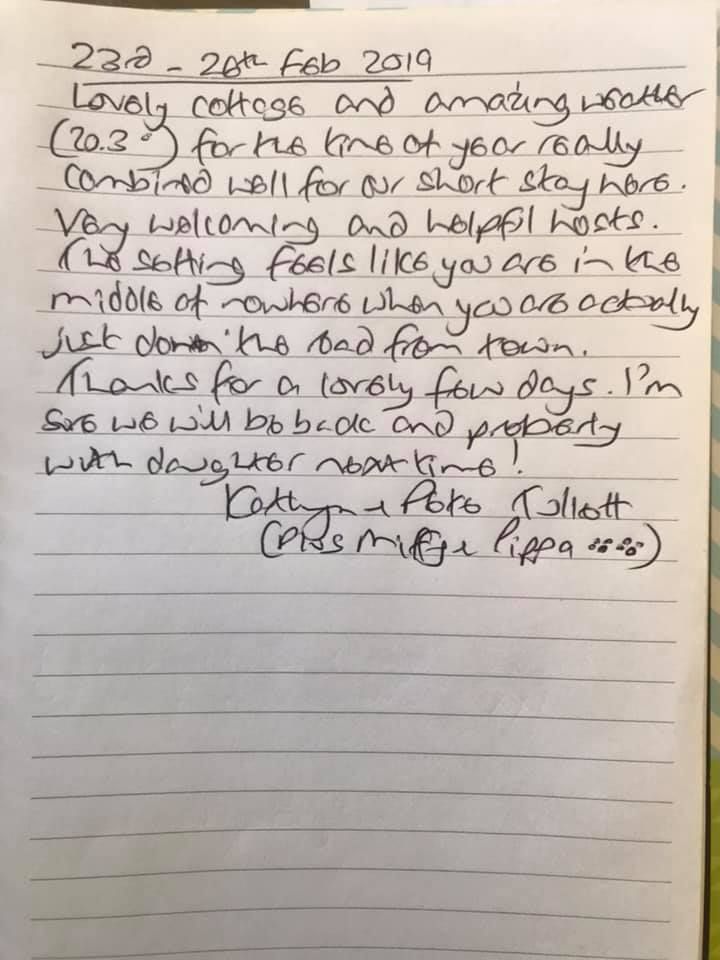 23rd - 26th Feb 2019
Lovely cottage and amazing weather
(20.3°) for the time of year really
combined well for our short stay here.
Very welcoming and helpful hosts.
The setting feels like you are in the
middle of nowhere when you are actually
just down the road from town.
Thanks for a lovely few days. I'm
sure we will be back and
with daughter next time!
Kathryn + Pete
(Plus Miffy + Pippa)